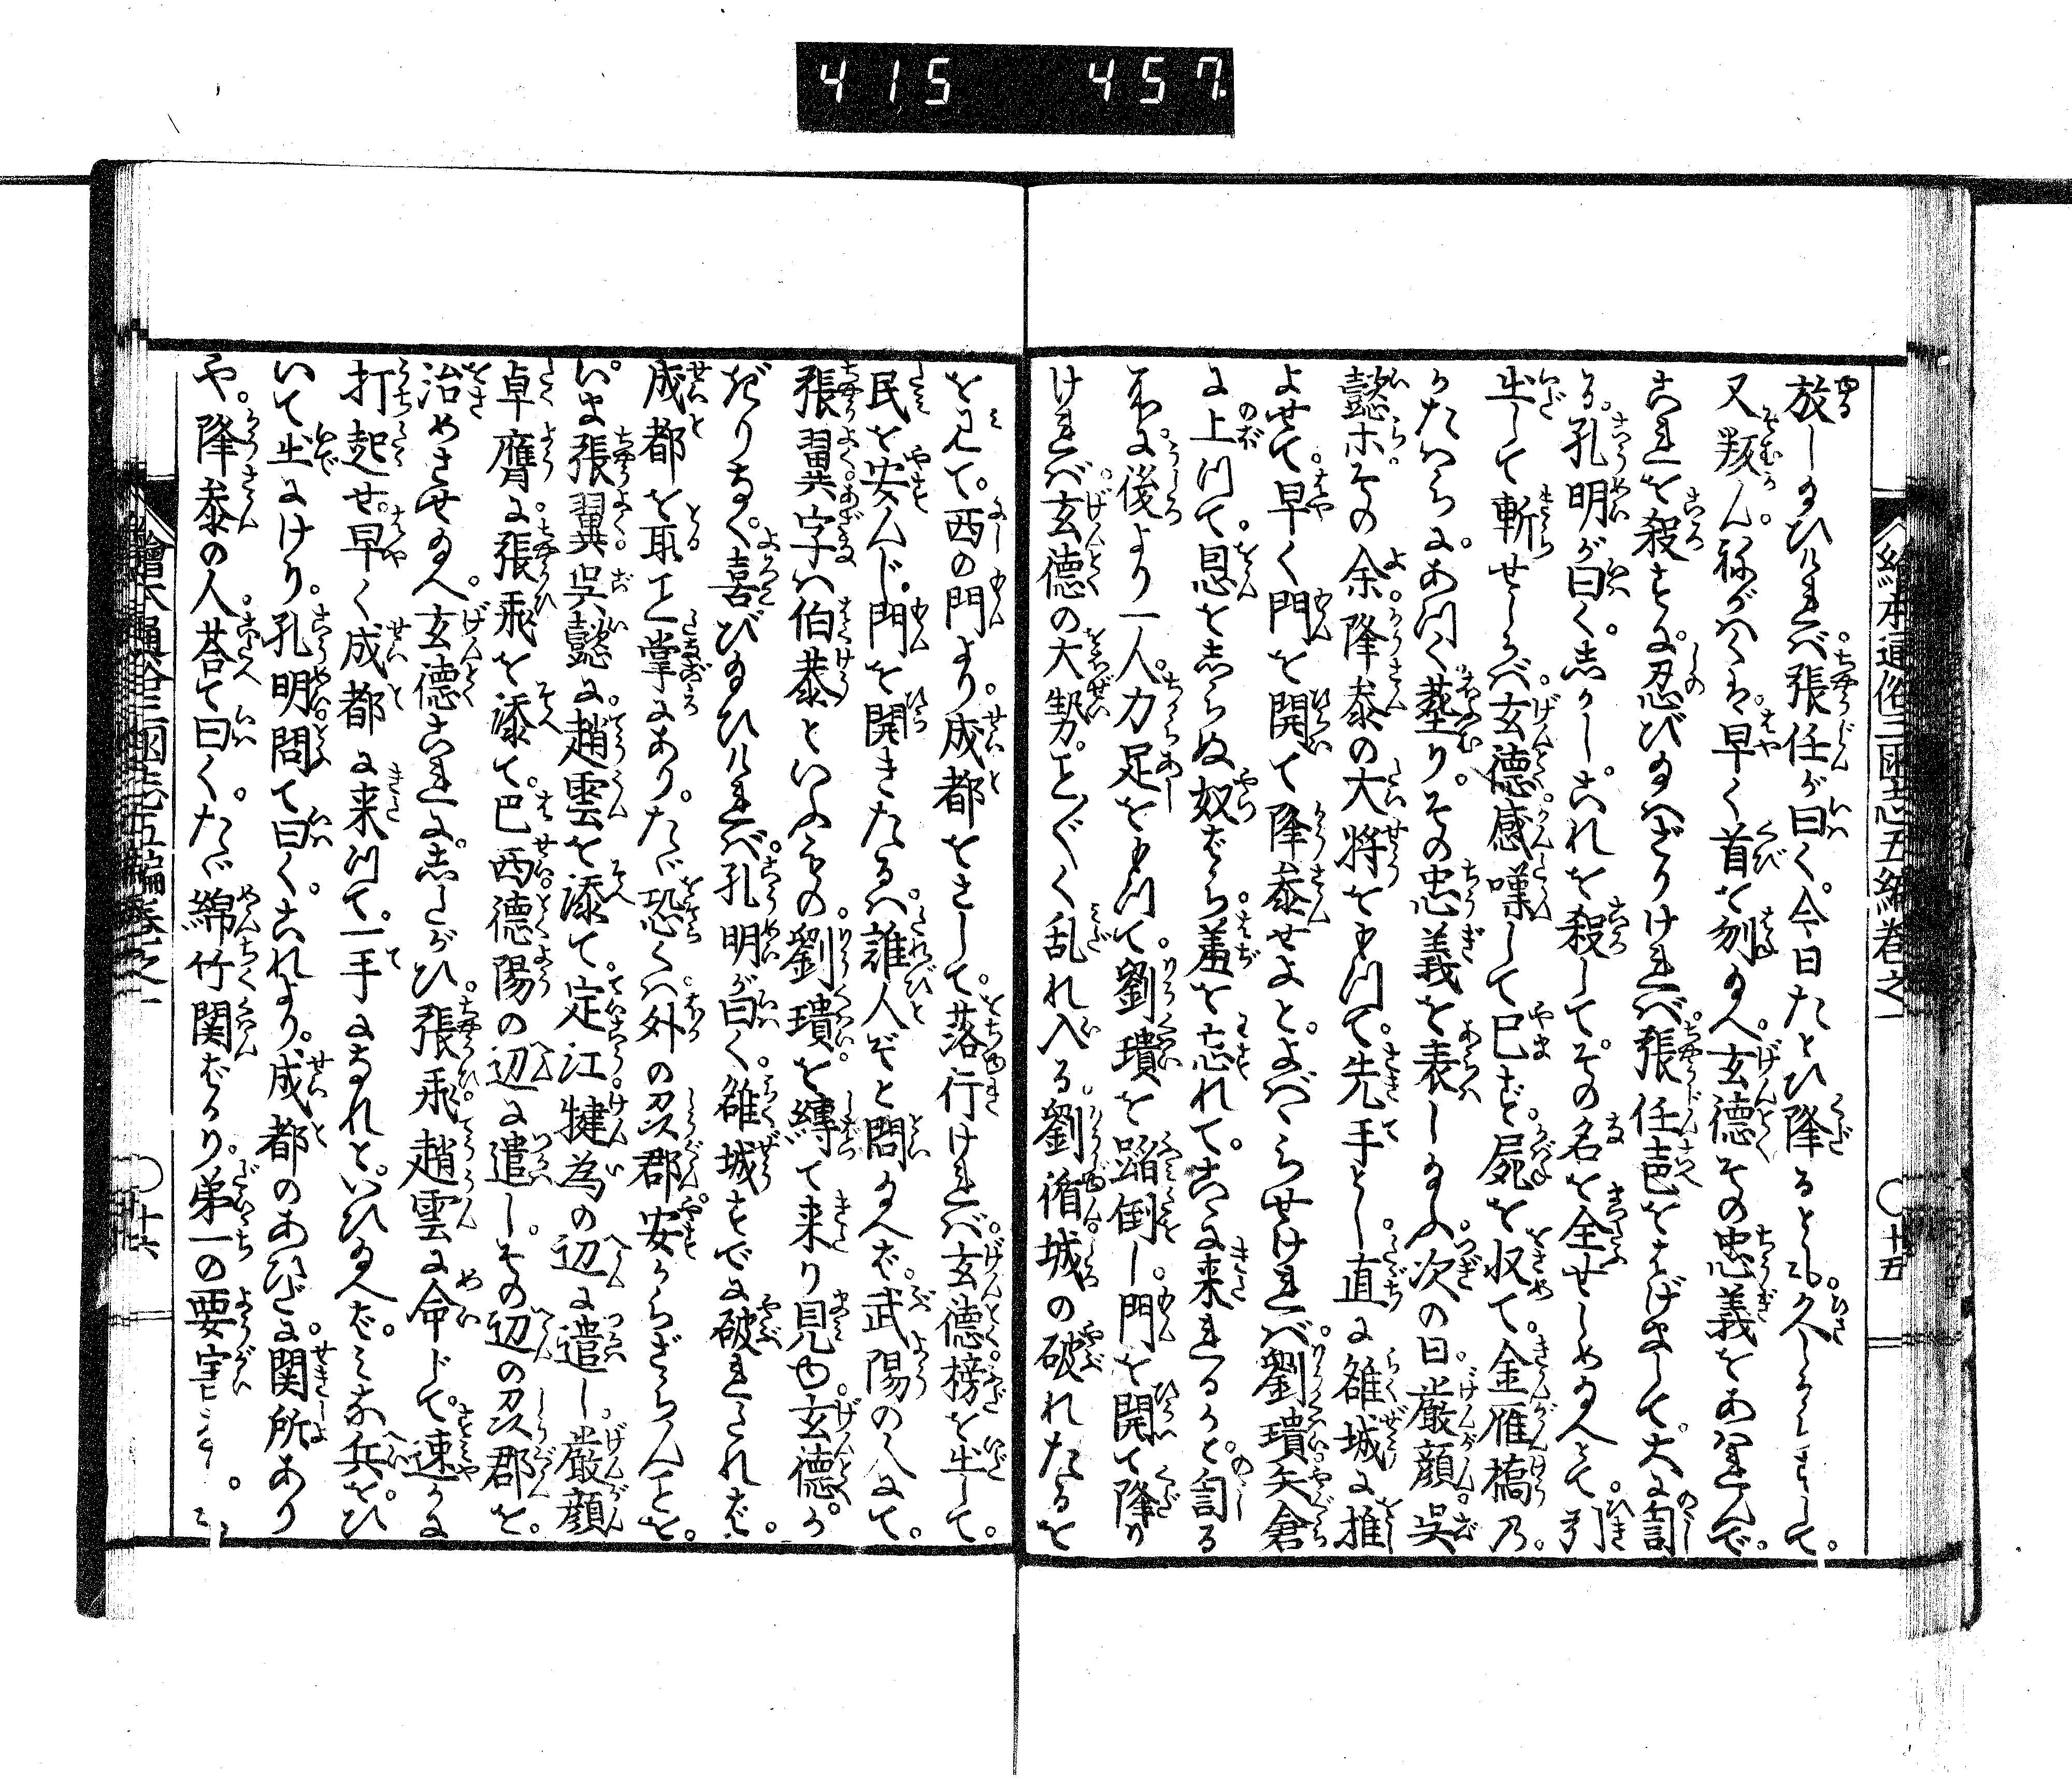 415 457
繪本通俗三國志五編巻之一
○十五
放し玉ひければ。張任が曰く。今日たとひ降るとも。久しからずして。
又叛ん。ねがはくは早く首を刎玉へ。玄德その忠義をあはれんで。
これを殺すに。忍び玉はざりければ。張任声をはげまして。大に罵
る。孔明が曰く。しかしこれを殺して。その名を全せしめ玉へとて。引
出して斬せしかば。玄德感嘆して已ず。屍を収て。金雁橋乃。
かたはらに。あつく葬り。その忠義を表し玉ふ。次の日。嚴顔。呉
懿ホ。その余。降叅の大将をもつて。先手とし。直に雒城に推
よせて。早く門を開て降叅せよと。よばゝらせければ。劉璝矢倉
に上つて。恩をしらぬ奴ばら。羞を忘れて。こゝに来れるかと罵る
に後より一人。力足をもつて。劉璝を蹈倒し。門を開て降り
ければ。玄德の大勢。こと〴〵く乱れ入る。劉循城の破れたるを
を見て。西の門より。成都をさして。落行ければ。玄德榜を出して。
民を安んじ。門を開きたるは。誰人ぞと問玉へば。武陽の人にて。
張翼字は伯恭といふもの。劉璝を縛て来り見ゆ。玄德。か
ぎりなく喜び玉ひければ。孔明が曰く。雒城すでに破れされば。
成都を取こと掌にあり。たゞ恐くは。外の忍郡安からざらんことを。
いま張翼呉懿に。趙雲を添て。定江。犍為の辺に遣し。嚴顔
卓膺に。張飛を添て。巴西德陽の辺に遣し。その辺の忍郡を。
治めさせ玉へ。玄德これにしたがひ。張飛。趙雲に命じて。速かに
打起せ。早く成都に来つて。一手になれと。いひ玉へば。みな兵をひ
いて出にけり。孔明問て曰く。これより。成都のあひだに。関所あり
や。降叅の人荅て曰く。たゞ綿竹関ばかり。第一の要害
繪本通俗三國志五編巻之一
○十六